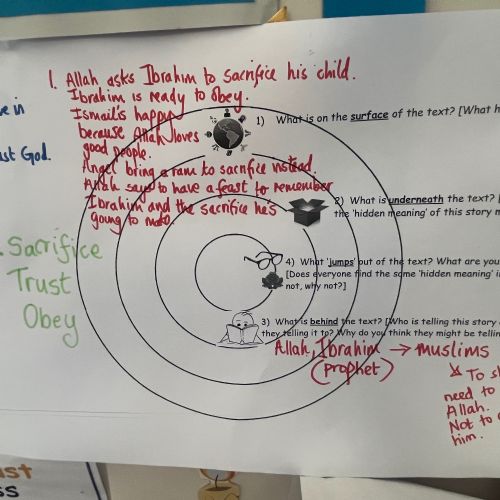 1. Allah asks Ibrahim to sacrifice his child.
Ibrahim is ready to obey.
Ismail's happy
because Allah loves
good people.
Angel bring a ram to sacrifice instead.
Allah says to have a feast to remember
Ibrahim and the sacrifice he's
going to make.
ve in
ust God.
Sacrifice
Trust
Obey
1) What is on the surface of the text? [What h
2) What is underneath the text?
the 'hidden meaning' of this story
4) What 'jumps' out of the text? What are you
[Does everyone find the same 'hidden meaning' i
not, why not?]
3) What is behind the text? [Who is telling this story
they telling it to? Why do you think they might be tellin
Allah, Ibrahim → muslims
(prophet)
To s
need to
Allah.
Not to
him.
ust
ss